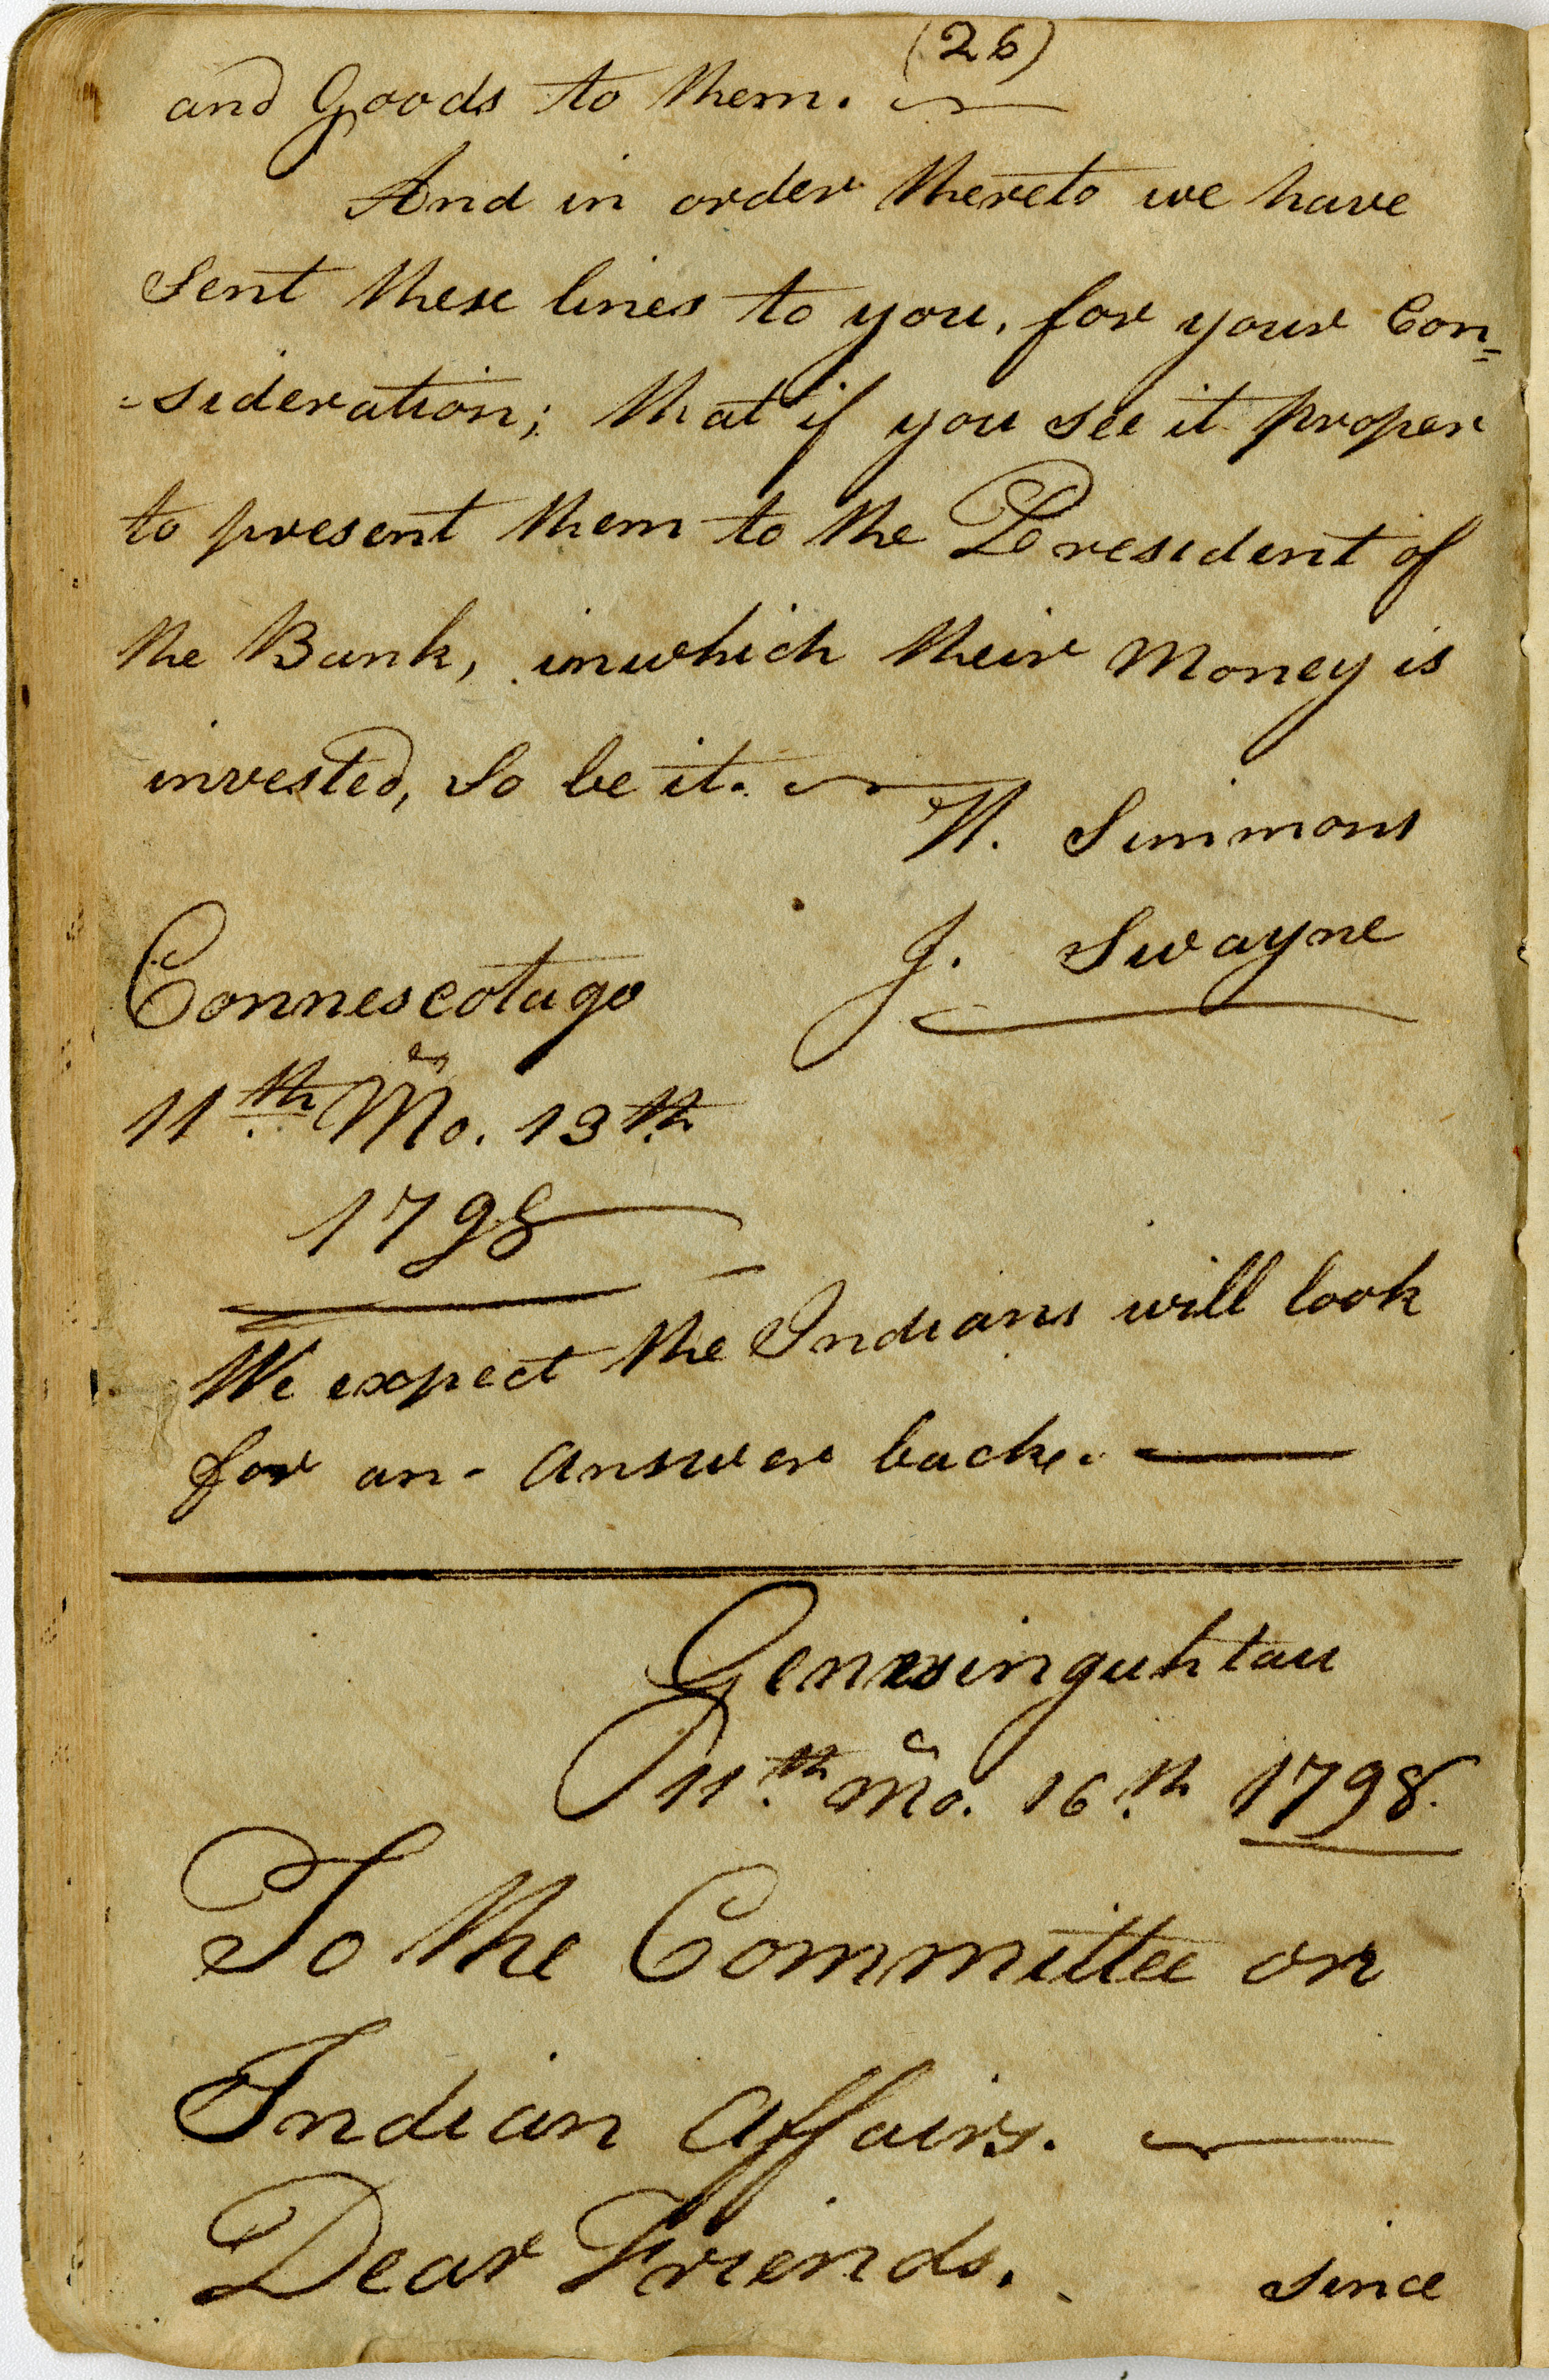 (26)
and Goods to them.
And in order thereto we have
Sent these lines to you, for your Con=
=sideration; that if you see it proper
to present them to the President of
the Bank, inwhich their Money is
invested, So be it.
N. Simmons
J. Swayne
Connescotago
11th Mo. 13th
1798
We expect the Indians will look
for an- answer back.
Genesinguhtau
11th mo. 16th 1798.
To the Committee on
Indian Affairs.
Dear Friends.
since